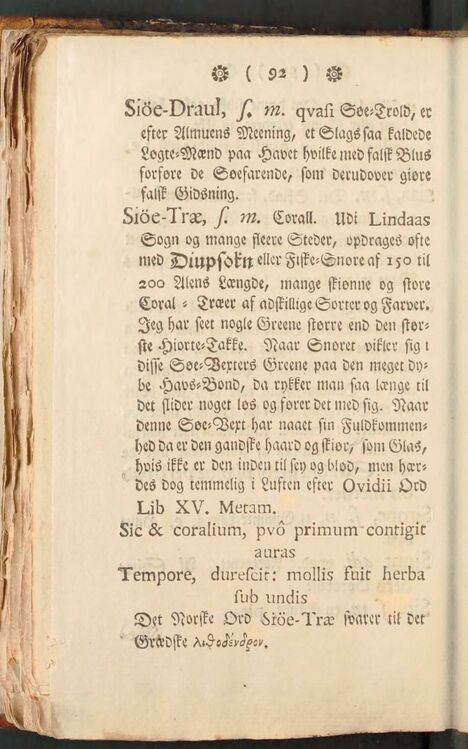 ( 92 )
Siöe-Draul, ſ. m. qvaſi Søe-Trold, er
efter Almuens Meening, et Slags ſaa kaldede
Løgte-Mænd paa Havet hvilke med falſk Blus
forføre de Søefarende, ſom derudover giøre
falſk Gidsning.
Siöe-Træ, ſ. m. Corall. Udi Lindaas
Sogn og mange fleere Steder, opdrages ofte
med Diupſokn eller Fiſke-Snore af 150 til
200 Alens Længde, mange ſkiønne og ſtore
Coral - Træer af adſkillige Sorter og Farver.
Jeg har ſeet nogle Greene ſtørre end den ſtør-
ſte Hiorte-Takke. Naar Snoret vikler ſig i
diſſe Søe-Vexters Greene paa den meget dy-
be Havs-Bond, da rykker man ſaa længe til
det ſlider noget løs og fører det med ſig. Naar
denne Søe-Vext har naaet ſin Fuldkommen-
hed da er den gandſke haard og ſkiør, ſom Glas,
hvis ikke er den inden til ſey og blød, men hær-
des dog temmelig i Luften efter Ovidii Ord
Lib XV. Metam.
Sic & coralium, pvô primum contigit
auras
Tempore, dureſcit: mollis fuit herba
ſub undis
Det Norſke Ord Siöe-Træ ſvarer til det
Grædſke λιθοδένδρον.